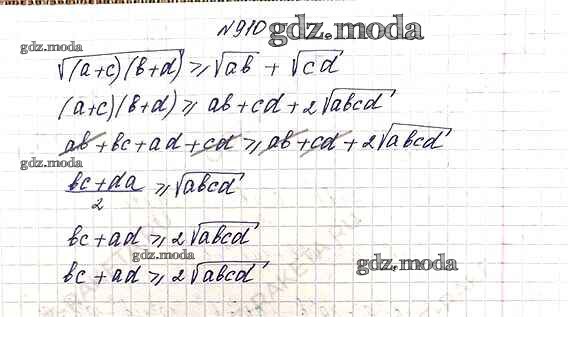 №910 gdz.moda
gdz.moda
√((a+c)(b+d)) ≥ √ab + √cd
gdz.moda
(a+c)(b+d) ≥ ab+cd+2√abcd
ab+bc+ad+cd ≥ ab+cd+2√abcd
gdz.moda
(bc+da)/2 ≥ √abcd
bc+ad ≥ 2√abcd
gdz.moda
bc+ad ≥ 2√abcd
gdz.moda